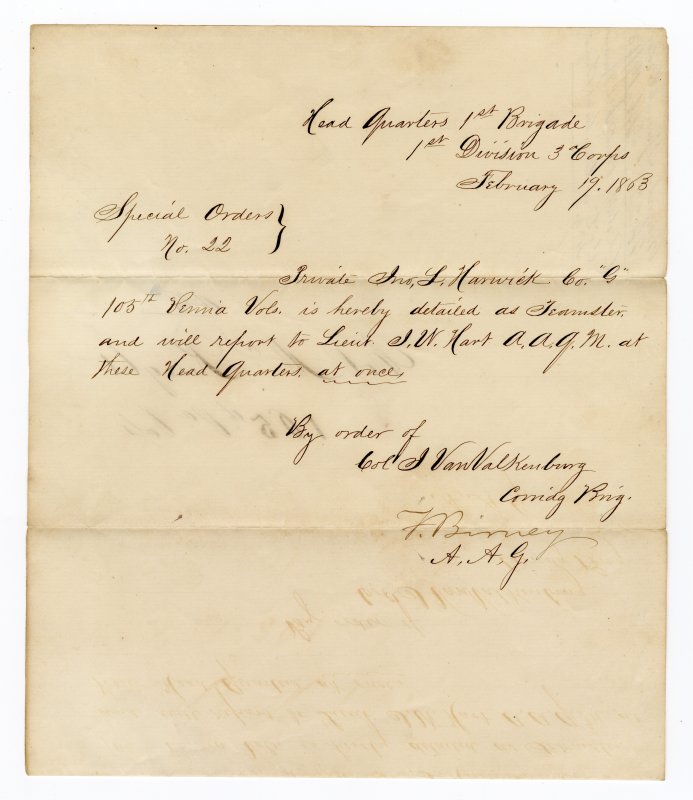 Head Quarters 1st Brigade
1st Division 3 Corps
February 19. 1863
Special Orders
No. 22
Private Jno, L, Harwick Co. "G"
105th Penna Vols. is hereby detailed as Teamster,
and will report to Lieut. J. W. Hart A. A. Q. M. at
these Head Quarters at once,
By order of
Col J VanValkenburg
Comdg Brig.
F. Birney
A. A. G.